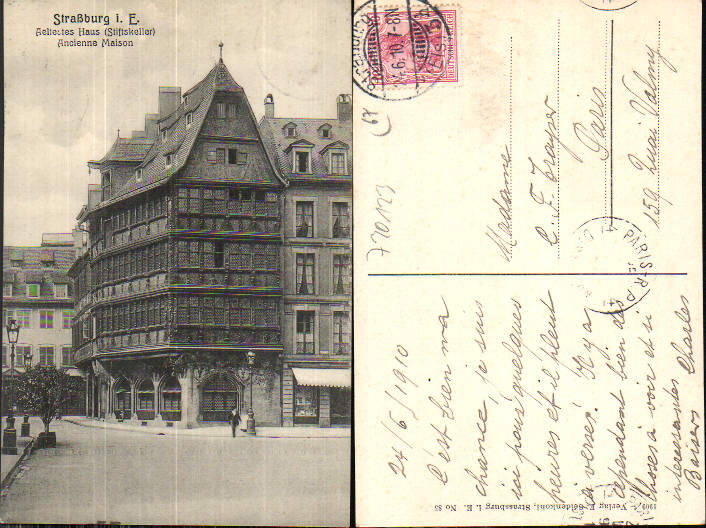 Straßburg i. E.
Aeltestes Haus (Stiftskeller)
Ancienne Maison
DEUTSCHES REICH
67
720123
Madame
C. F.
Paris
159 Quai Valmy
PARIS-R.A
24/6/1910
C'est bien ma
chance, je suis
ici pour quelques
heures et il pleut
à verses. Il y a
cependant bien des
choses à voir et si
interessantes
Baisers Charles
1909 Verlag F. Seidenkohl, Strassburg i. E. No 85